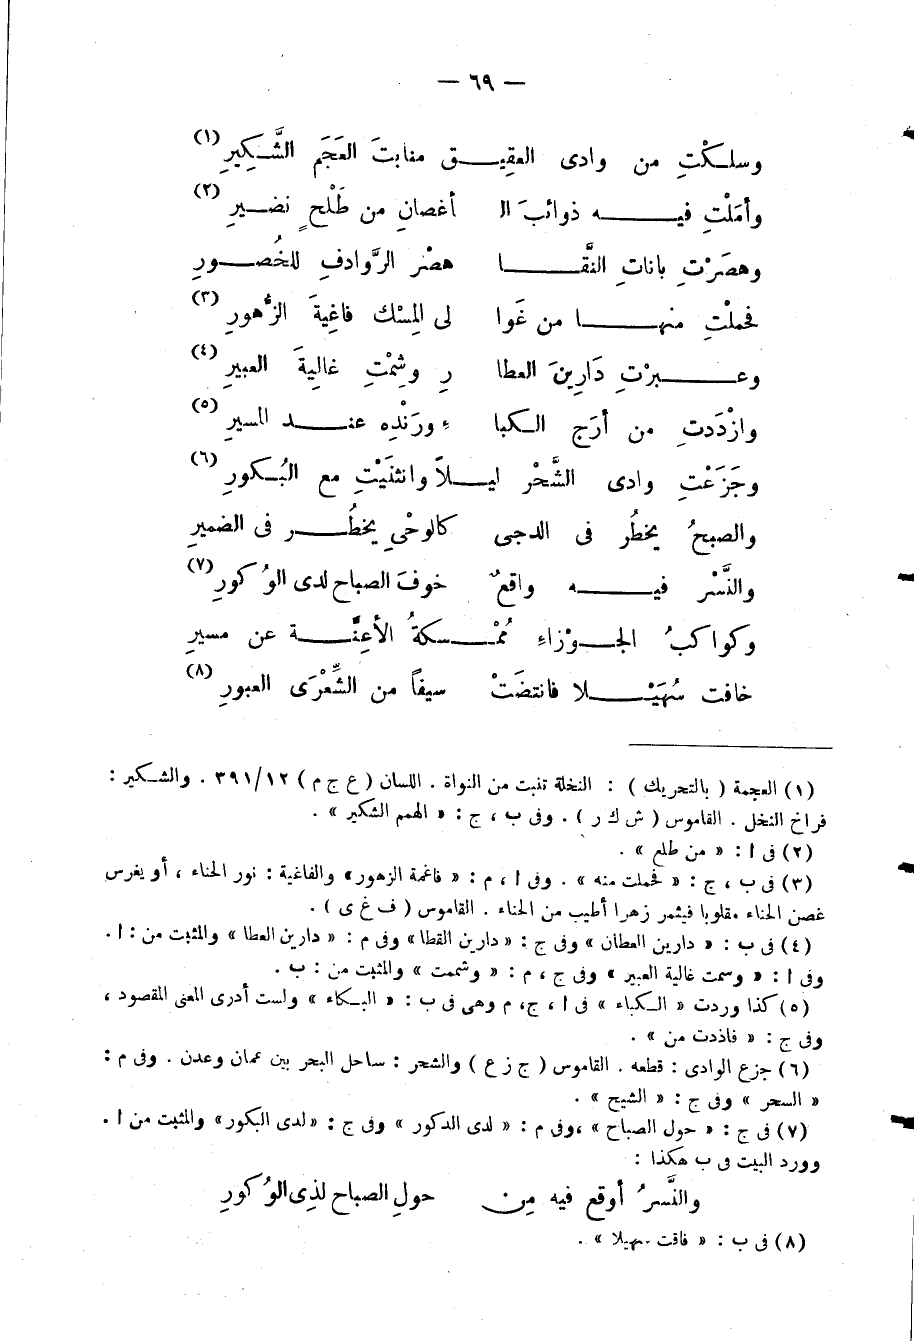 — ٦٩ —
وسلكْتِ من وادى العقيـق منابتَ العَجَم الشَّكِيرِ (١)
وأمَلْتِ فيـه ذوائبَ الـ أغصانِ من طَلْحٍ نضـيرِ (٢)
وهصَرْتِ باناتِ النَّقـا هصْر الرَّوادفِ للخُصـورِ
فحملْتِ منهـا من غَوا لى المِسْك فاغِيةَ الزُّهورِ (٣)
وعـبرْتِ دَارِينَ العطا رِ وشِمْتِ غالِيةَ العبيرِ (٤)
وازْدَدتِ من أرَج الكبا ءِ ورَنْدِه عنـد المسيرِ (٥)
وجَزَعْتِ وادى الشَّحْر ليـلاً وانثنَيْتِ مع البُـكورِ (٦)
والصبحُ يخطُر فى الدجى كالوحْىِ يخطُـر فى الضميرِ
والنَّسْر فيـه واقعٌ خوفَ الصباح لدى الوُكورِ (٧)
وكواكبُ الجـوْزاءِ مُمْـسكةُ الأعِنَّـة عن مسيرِ
خافت سُهَيْـلا فانتضَتْ سيفاً من الشِّعْرَى العبورِ (٨)
(١) العجمة ( بالتحريك ) : النخلة تنبت من النواة . اللسان ( ع ج م ) ٣٩١/١٢ . والشكير :
فراخ النخل . القاموس ( ش ك ر ) . وفى ب ، ج : « الهمم الشكير » .
(٢) فى ا : « من طلع » .
(٣) فى ب ، ج : « فحملت منه » . وفى ا ، م : « فاغمة الزهور» والفاغية : نور الحناء ، أو يغرس
غصن الحناء مقلوبا فيثمر زهرا أطيب من الحناء . القاموس ( ف غ ى ) .
(٤) فى ب : « دارين العطان » وفى ج : « دارين القطا» وفى م : « دارين العطا » والمثبت من : ا .
وفى ا : « وسمت غالية العبير » وفى ج ، م : « وشممت » والمثبت من : ب .
(٥) كذا وردت « الكباء » فى ا ، ج، م وهى فى ب : « البكاء » ولست أدرى المعنى المقصود ،
وفى ج : « فاذدت من » .
(٦) جزع الوادى : قطعه . القاموس ( ج ز ع ) والشحر : ساحل البحر بين عمان وعدن . وفى م :
« السحر » وفى ج : « الشيح » .
(٧) فى ج : « حول الصباح » ،وفى م : « لدى الدكور » وفى ج : «لدى البكور» والمثبت من ا .
وورد البيت فى ب هكذا :
والنَّسرُ أوقع فيه مِن حولِ الصباح لذِى الوُكورِ
(٨) فى ب : « فاقت سهيلا » .